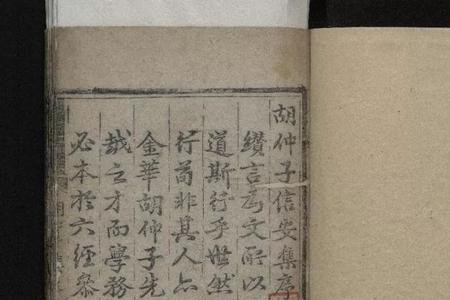 胡仲子信安集序
纘言為文所以
道斯行乎世然
行苟非其人亦
金華胡仲子先
哉之才而學務
必本於六經參